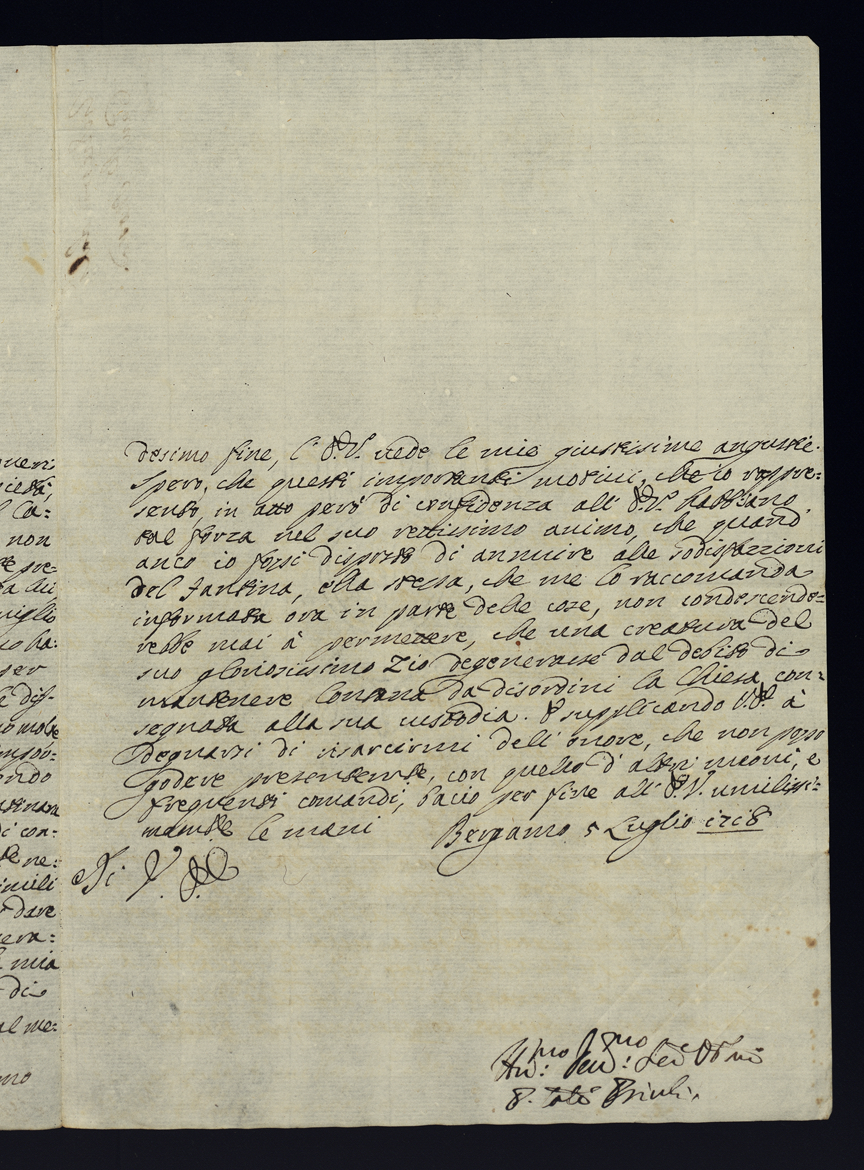 desimo fine, l' E.V. vede le mie giustissime angustie.
Spero, che questi importanti motivi, che lo rappre=
sento in atto però di confidenza all' E.V. habbiano
tal forza nel suo rettissimo animo, che quand'
anco io fossi disposto di annuire alle sodisfazzioni
del Fantina, ella stessa, che me lo raccomanda
informata ora in parte delle cose, non condescende=
rebbe mai à permetere, che una creatura del
suo gloriosissimo Zio degenerasse dal debito di
mantenere lontana da disordini la Chiesa con=
segnata alla sua custodia. E supplicando V.E. à
degnarsi di risarcirmi dell' onore, che non posso
godere presentemente, con quello d' altri meoni, e
frequenti comandi, bacio per fine all' E.V. umilissi=
mamte le mani Bergamo 5 Luglio 1718
Di V. E.
Humo Devmo
P. Priuli.
ueri
cietà,
l Ca=
non
te pre=
ta lui,
niglio
io ha=
ser
è dis=
o molte
impor=
ondo
di con=
te ne=
imili
dare
era=
l mia
di
al me=
mo